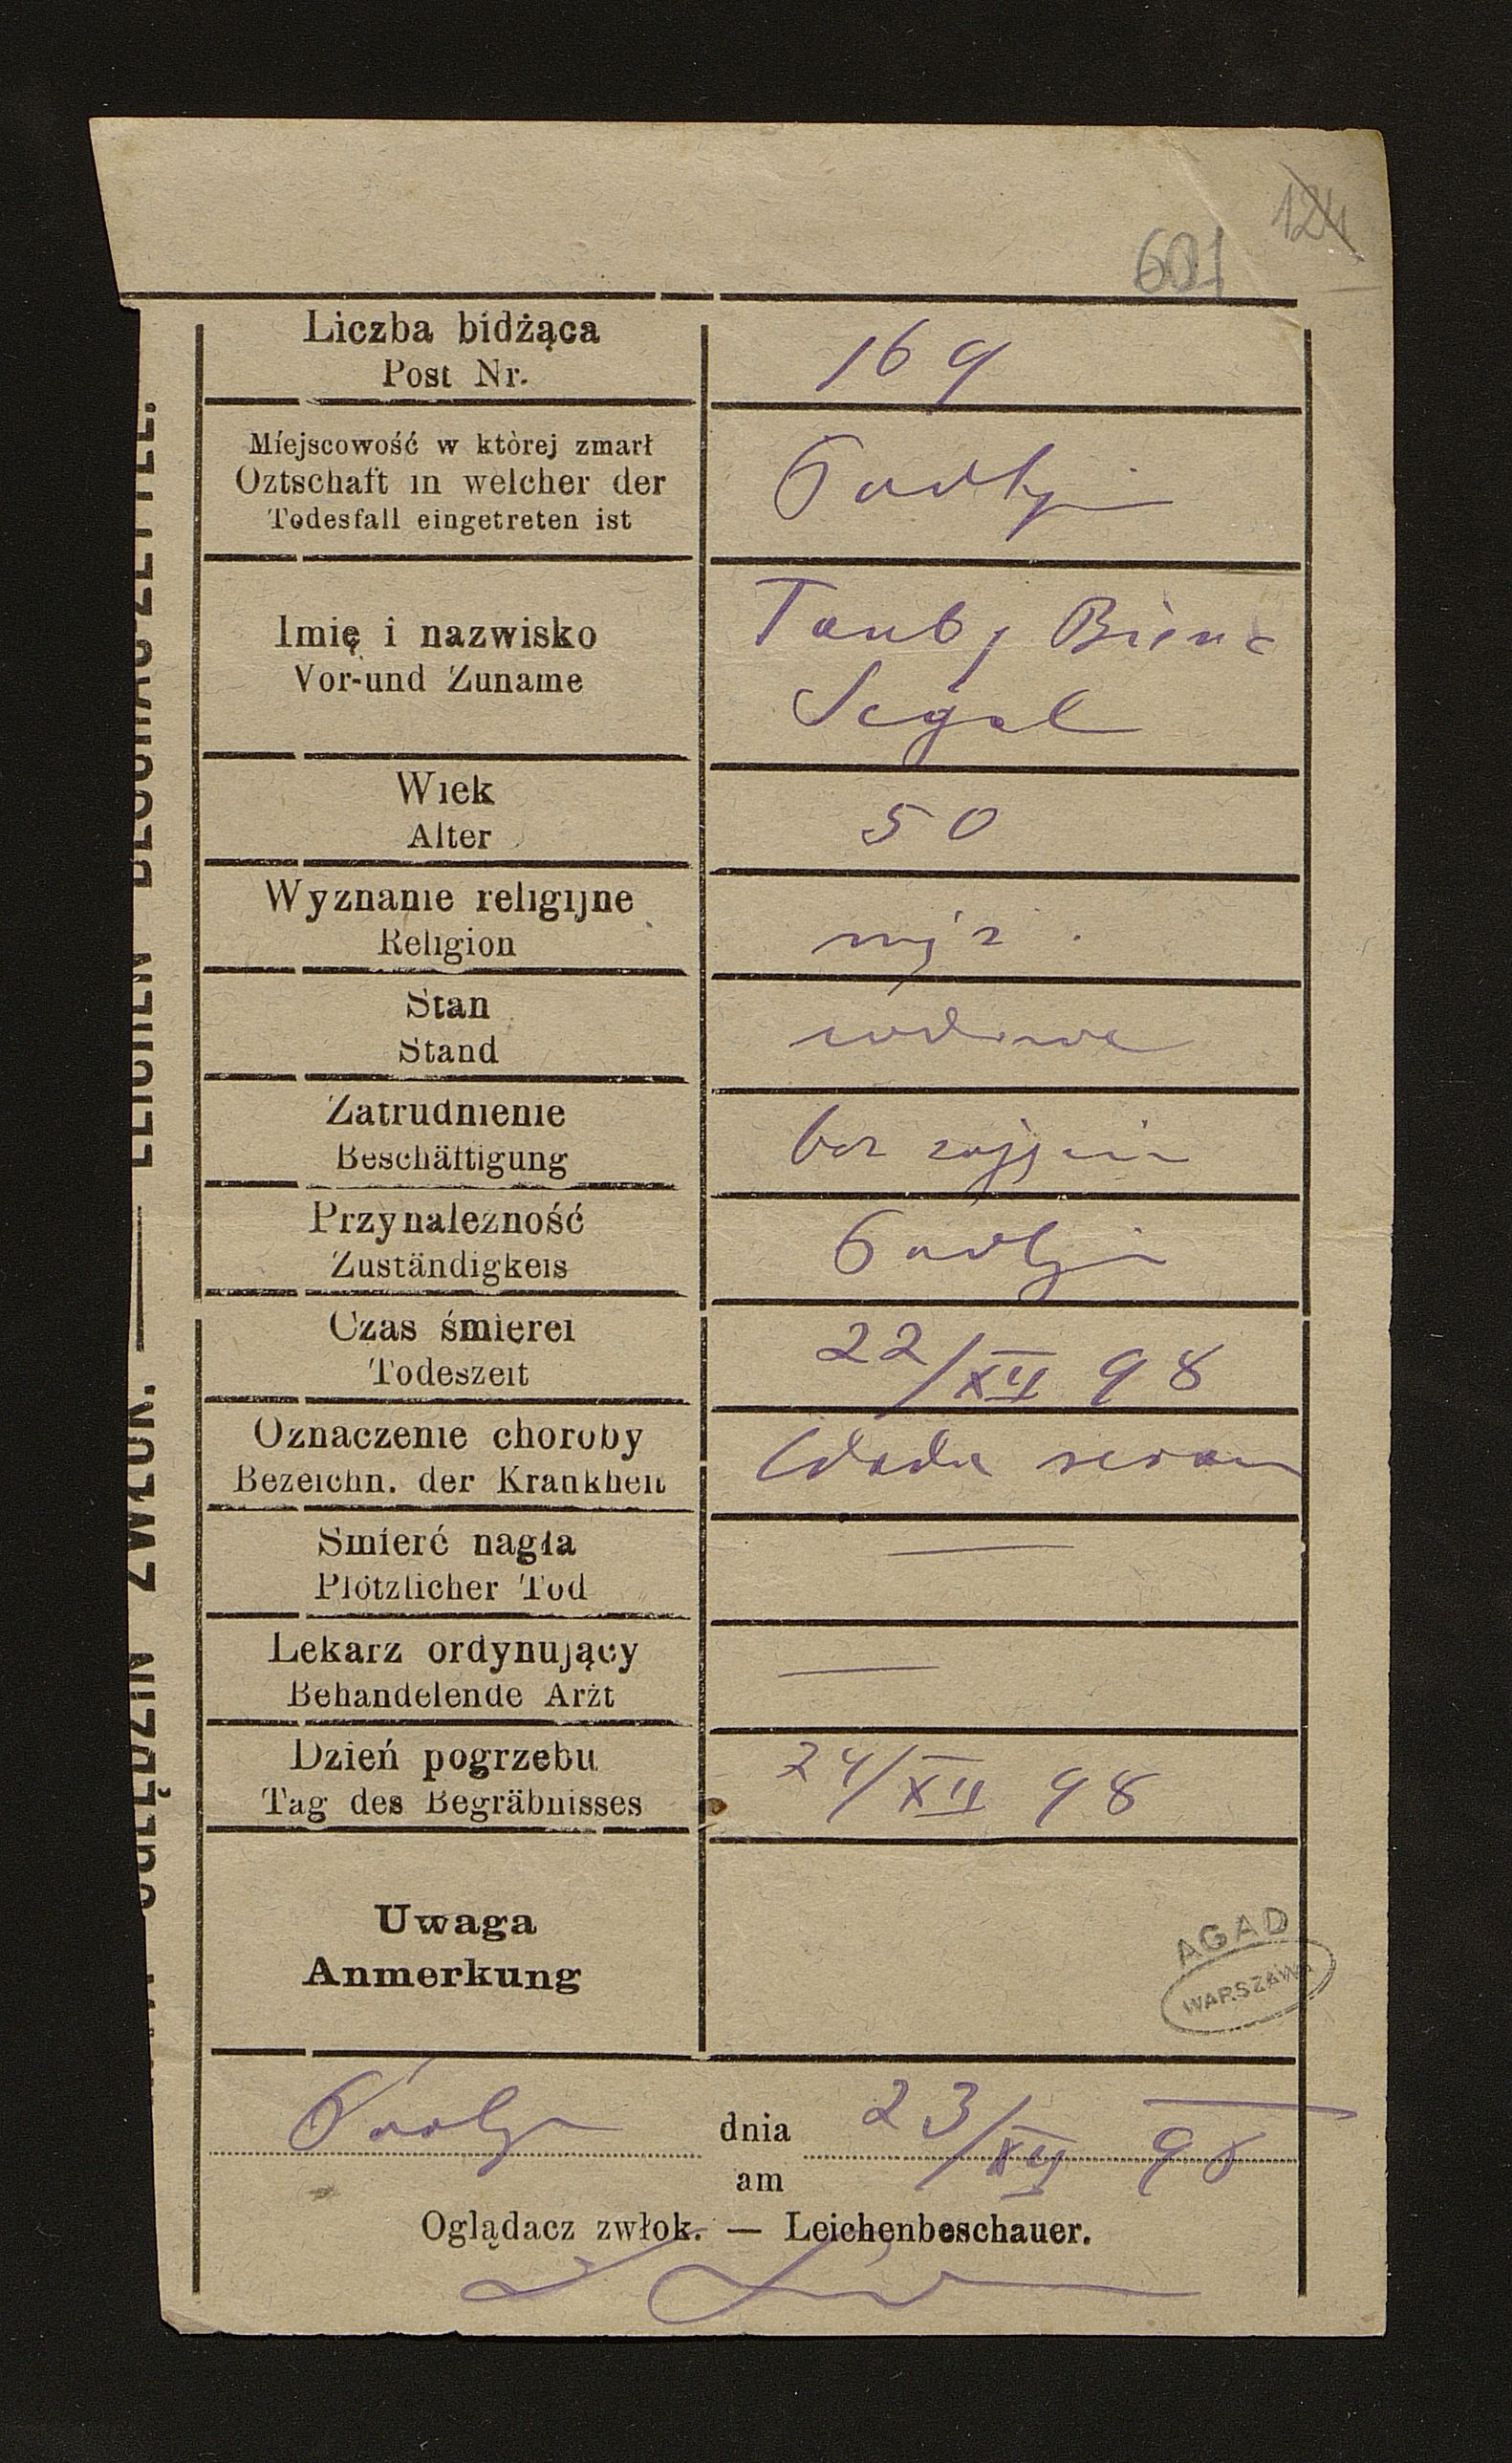 124
601
Liczba bidżąca
Post Nr.
169
Miejscowość w której zmarł
Oztschaft in welcher der
Todesfall eingetreten ist
Imię i nazwisko
Vor-und Zuname
Segal
Wiek
Alter
50
Wyznanie religijne
Religion
Stan
Stand
wdowa
Zatrudnienie
Beschäftigung
bez zajęcia
Przynależność
Zuständigkeis
Czas śmierei
Todeszeit
22/XII 98
Oznaczenie choroby
Bezeichn. der Krankheit
Smierć nagła
Plötzlicher Tod
Lekarz ordynujący
Behandelende Arżt
Dzień pogrzebu
Tag des Begräbnisses
24/XII 98
Uwaga
Anmerkung
AGAD
WARSZAWA
dnia 23/XII 98
am
Oglądacz zwłok. — Leichenbeschauer.
OGLĘDZIN ZWŁOK. — LEICHEN BESCHAUZETTEL.